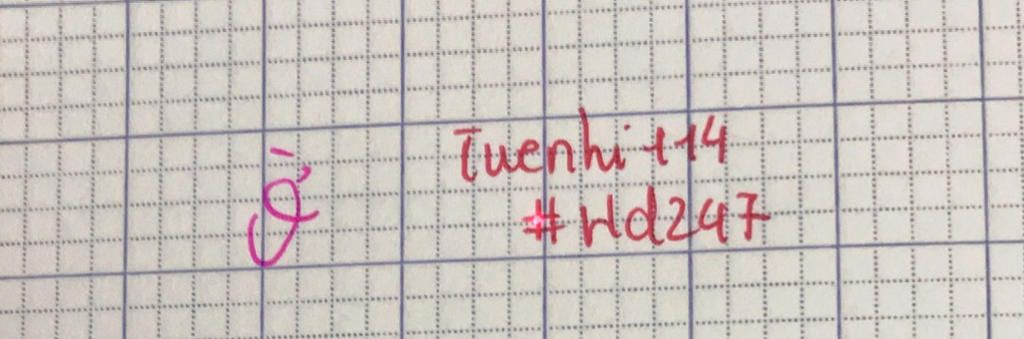 Tuenhi 114
#Hd247